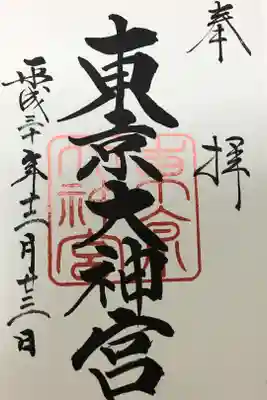 奉拝
東京大神宮
東京大神宮
平成三十年十二月廿三日